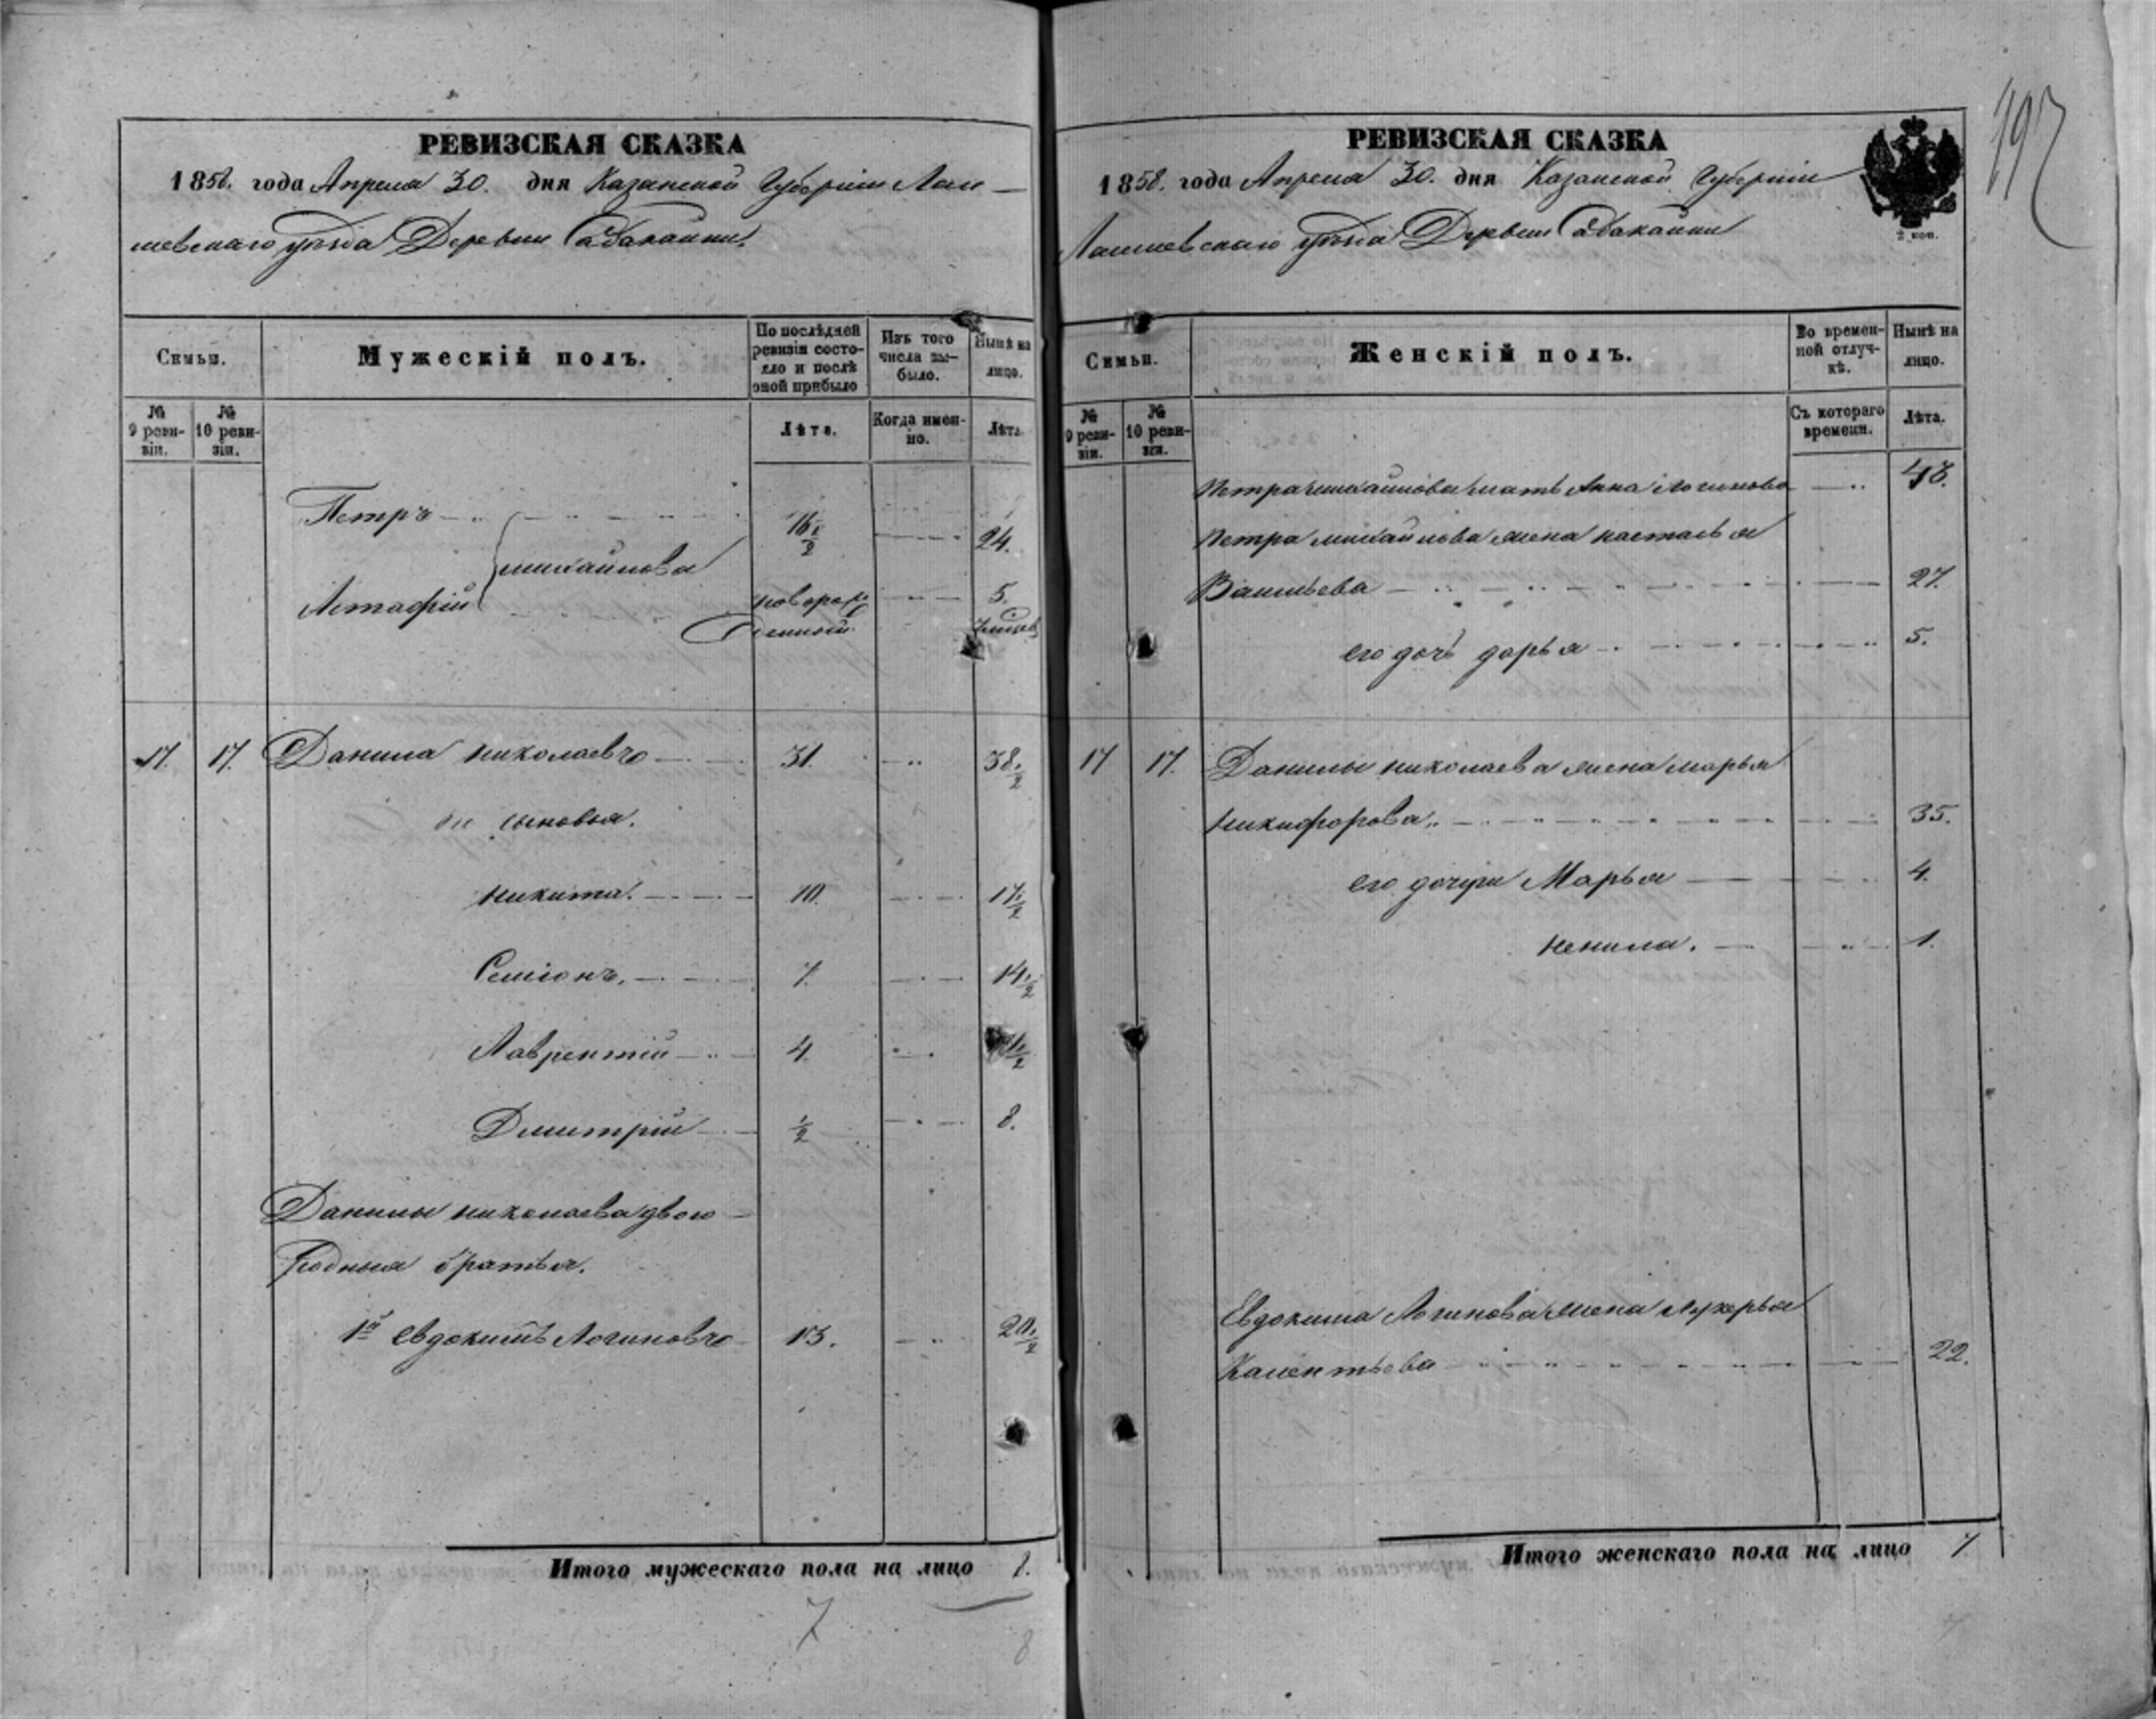 РЕВИЗСКАЯ СКАЗКА
1858. года Апреля 30. дня Казанской Губерніи Лаи-
шевскаго уѣзда Деревни Сабакайки.
Семьи.
Мужескій полъ.
По послѣдней ревизіи состояло и послѣ оной прибыло
Изъ того числа выбыло.
Нынѣ на лицо.
№ 9 ревизіи.
№ 10 ревизіи.
Лѣта.
Когда именно.
Лѣта.
Петръ 16 1/2 24.
михайловы
Астафій новорожденный 5.
17. 17. Данила николаевъ 31. 38 1/2
сыновья.
никита. 10. 17 1/2
Семіонъ. 7. 14 1/2
Лаврентій 4 11 1/2
Дмитрій 1/2 8.
Данилы николаева двою-
родныя братья.
1й Евдокимъ Логиновъ 13. 20 1/2
Итого мужескаго пола на лицо 8.
7
8
РЕВИЗСКАЯ СКАЗКА
1858. года Апреля 30. дня Казанской Губерніи
Лаишевскаго уѣзда Деревни Сабакайки
2 коп.
197
Семьи.
Женскій полъ.
Во временной отлучкѣ.
Нынѣ на лицо.
№ 9 ревизіи.
№ 10 ревизіи.
Съ котораго времени.
Лѣта.
Петра михайлова мать Анна Логинова 48.
Петра михайлова жена настасья
Васильева 27.
его дочь дарья 5.
17 17. Данилы николаева жена марья
никифорова 35.
его дочери Марья 4.
ненила. 1.
Евдокима Логинова жена лукерья
22.
Итого женскаго пола на лицо 7